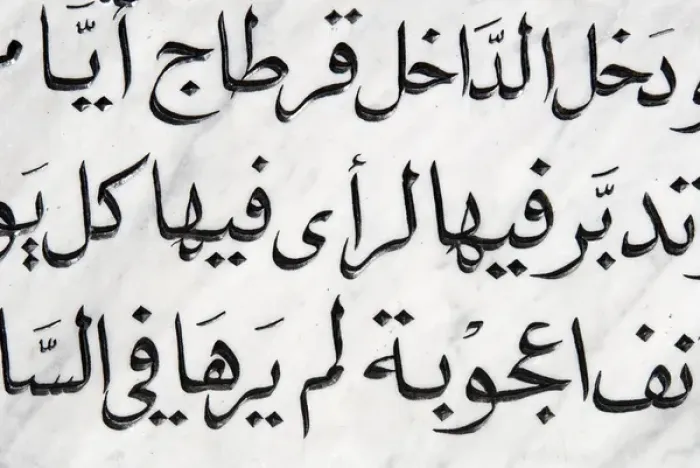 و دَخل الدَّاخل قرطاج أيَّام
تدبَّر فيها لرأى فيها كل يَو
نف اعجوْبة لم يَرهَا في السَّا